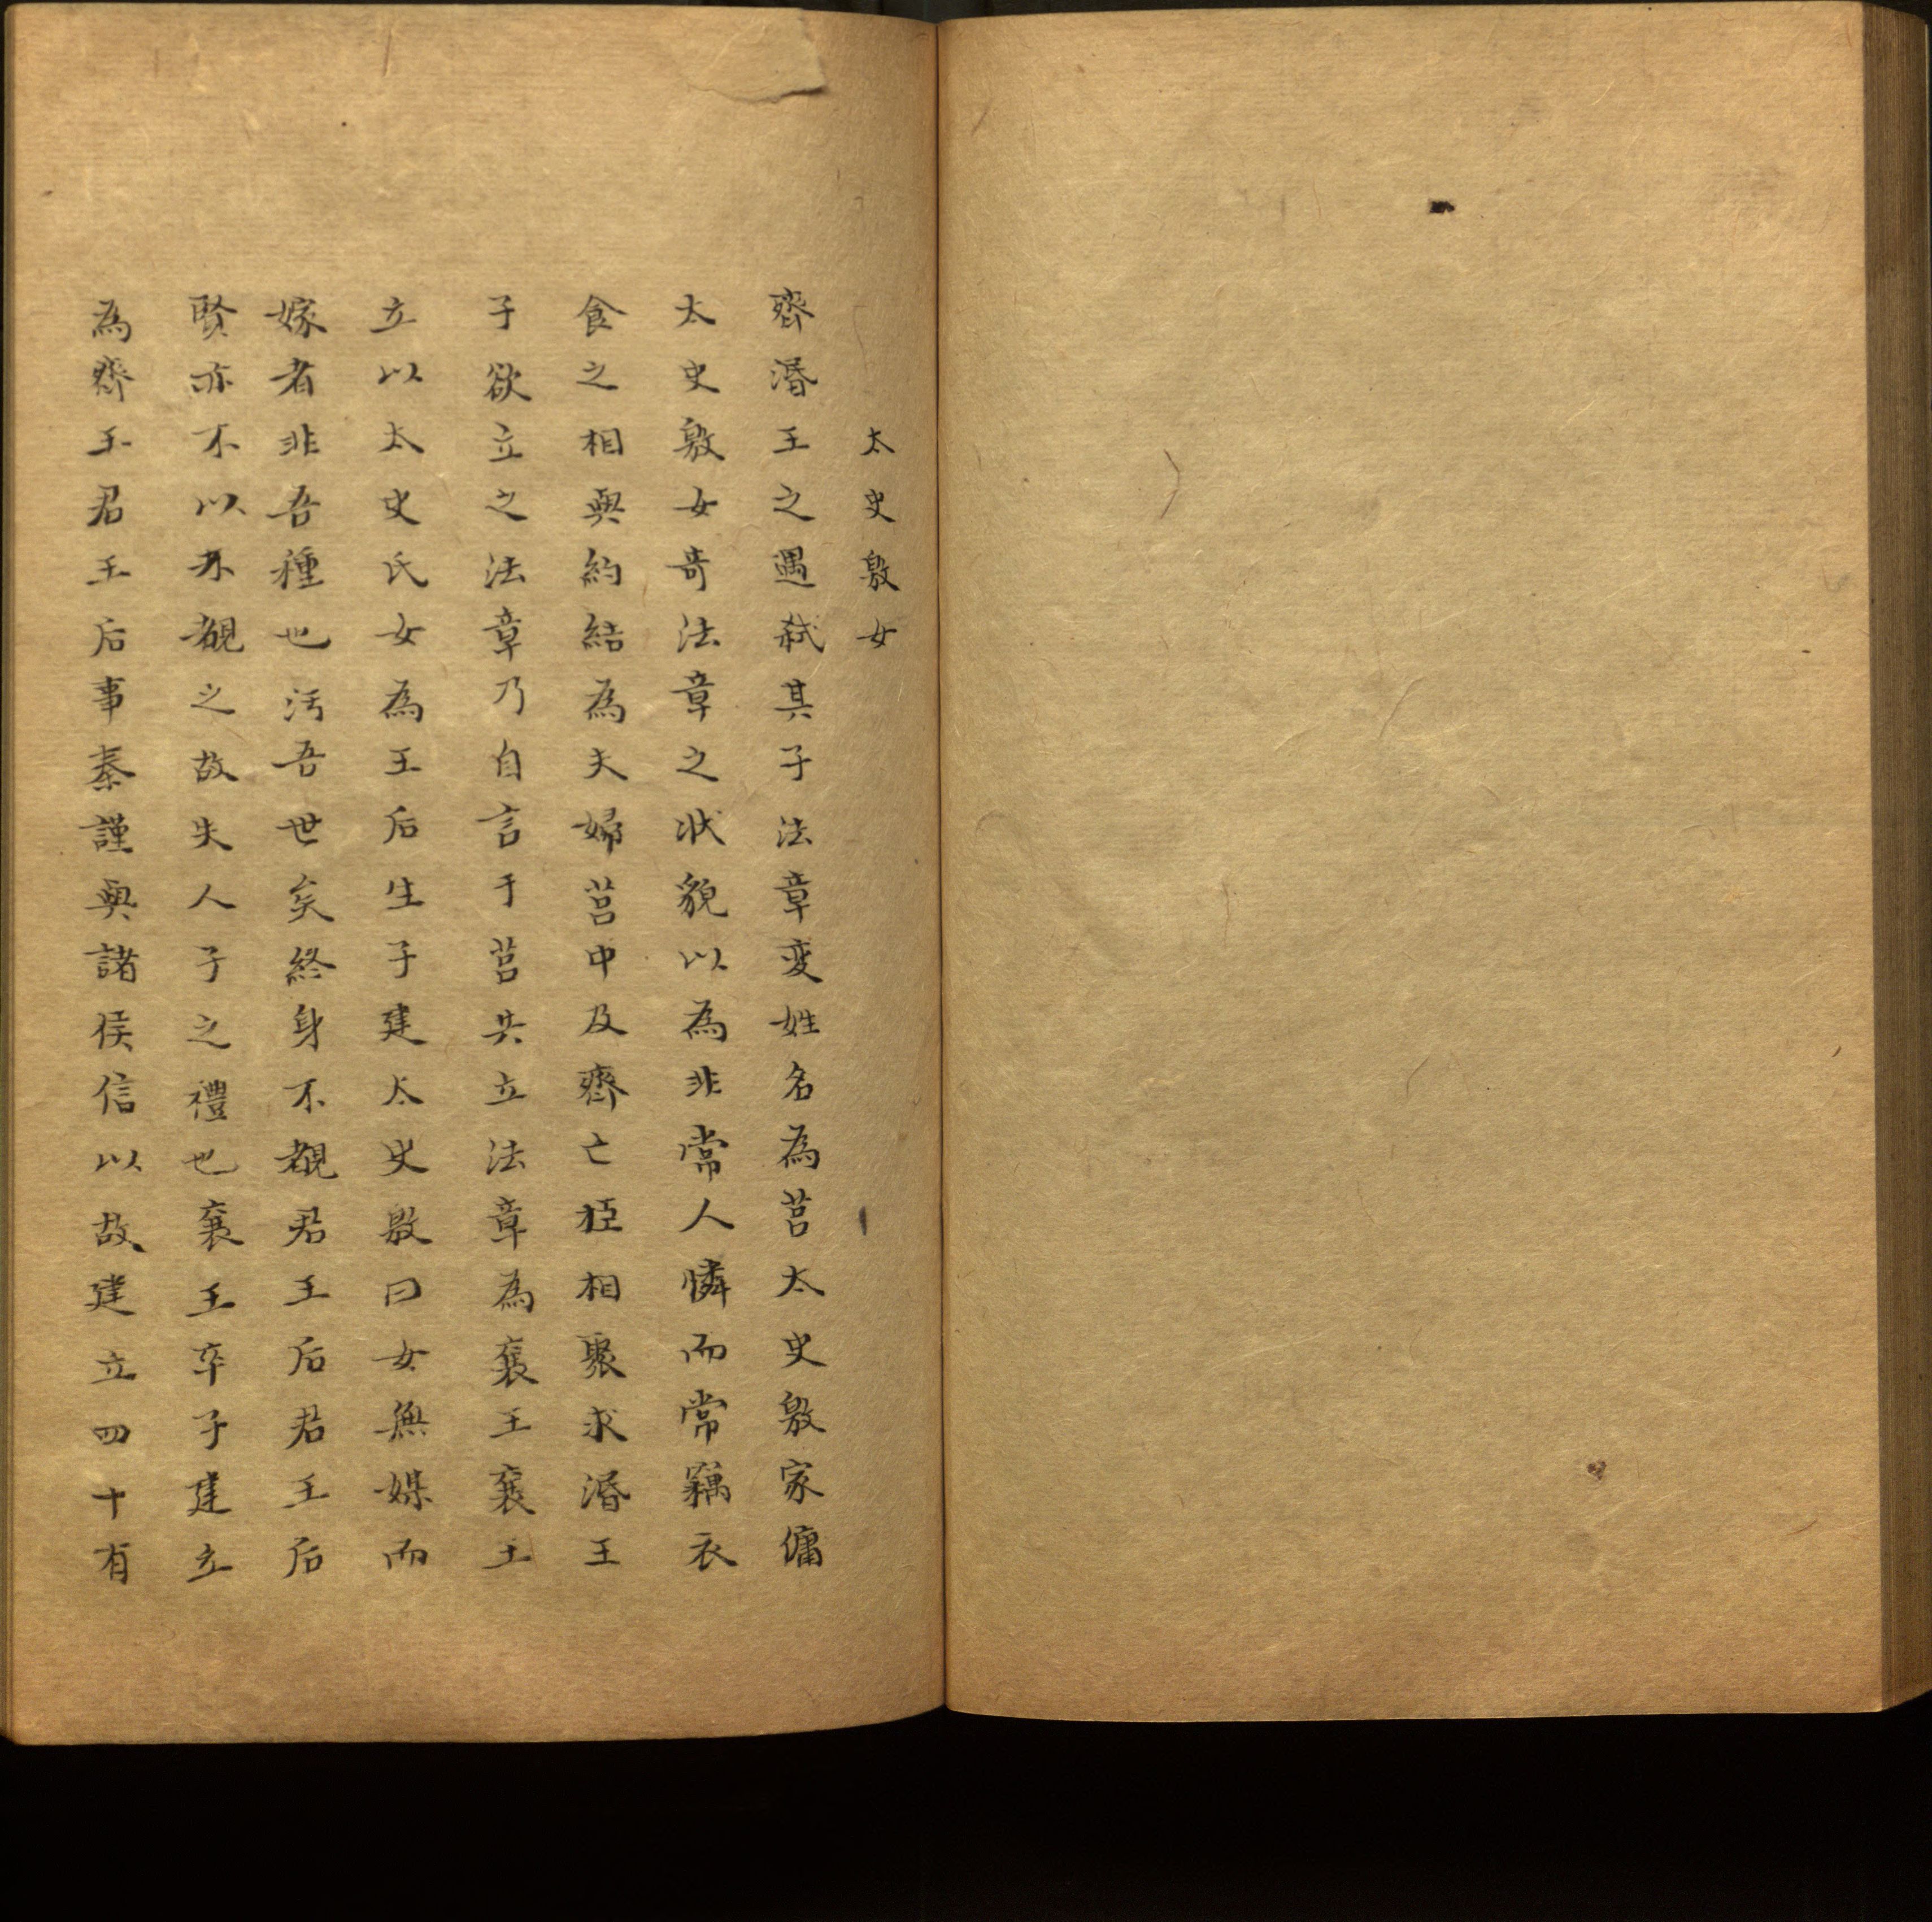 太史敫女
齊湣王之遇弑其子法章変姓名為莒太史敫家傭
太史敫女奇法章之狀貌以為非常人憐而常竊衣
食之相與約結為夫婦莒中及齊亡臣相聚求湣王
子欲立之法章乃自言于莒共立法章為襄王襄王
立以太史氏女為王后生子建太史敫曰女無媒而
嫁者非吾種也汚吾世矣終身不覩君王后君王后
賢亦不以不覩之故失人子之禮也襄王卒子建立
為齊王君王后事秦謹與諸侯信以故建立四十有